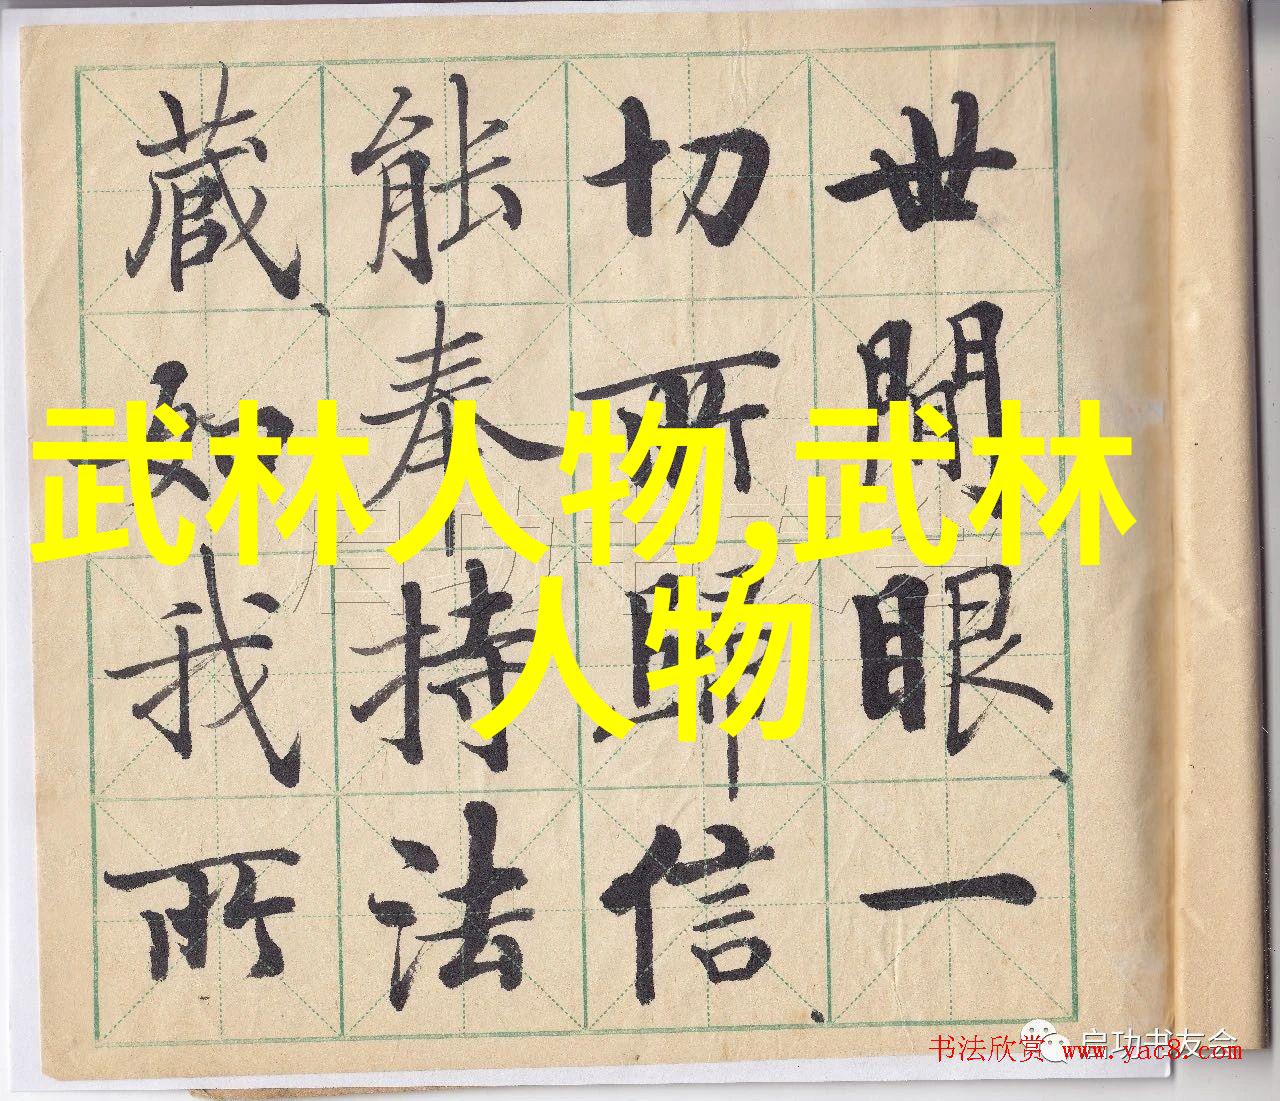 世間眼一
切所歸信
能奉持法
藏如我所
武林人物,武林
人物
启功书友会
书法欣赏 www.yac8.com